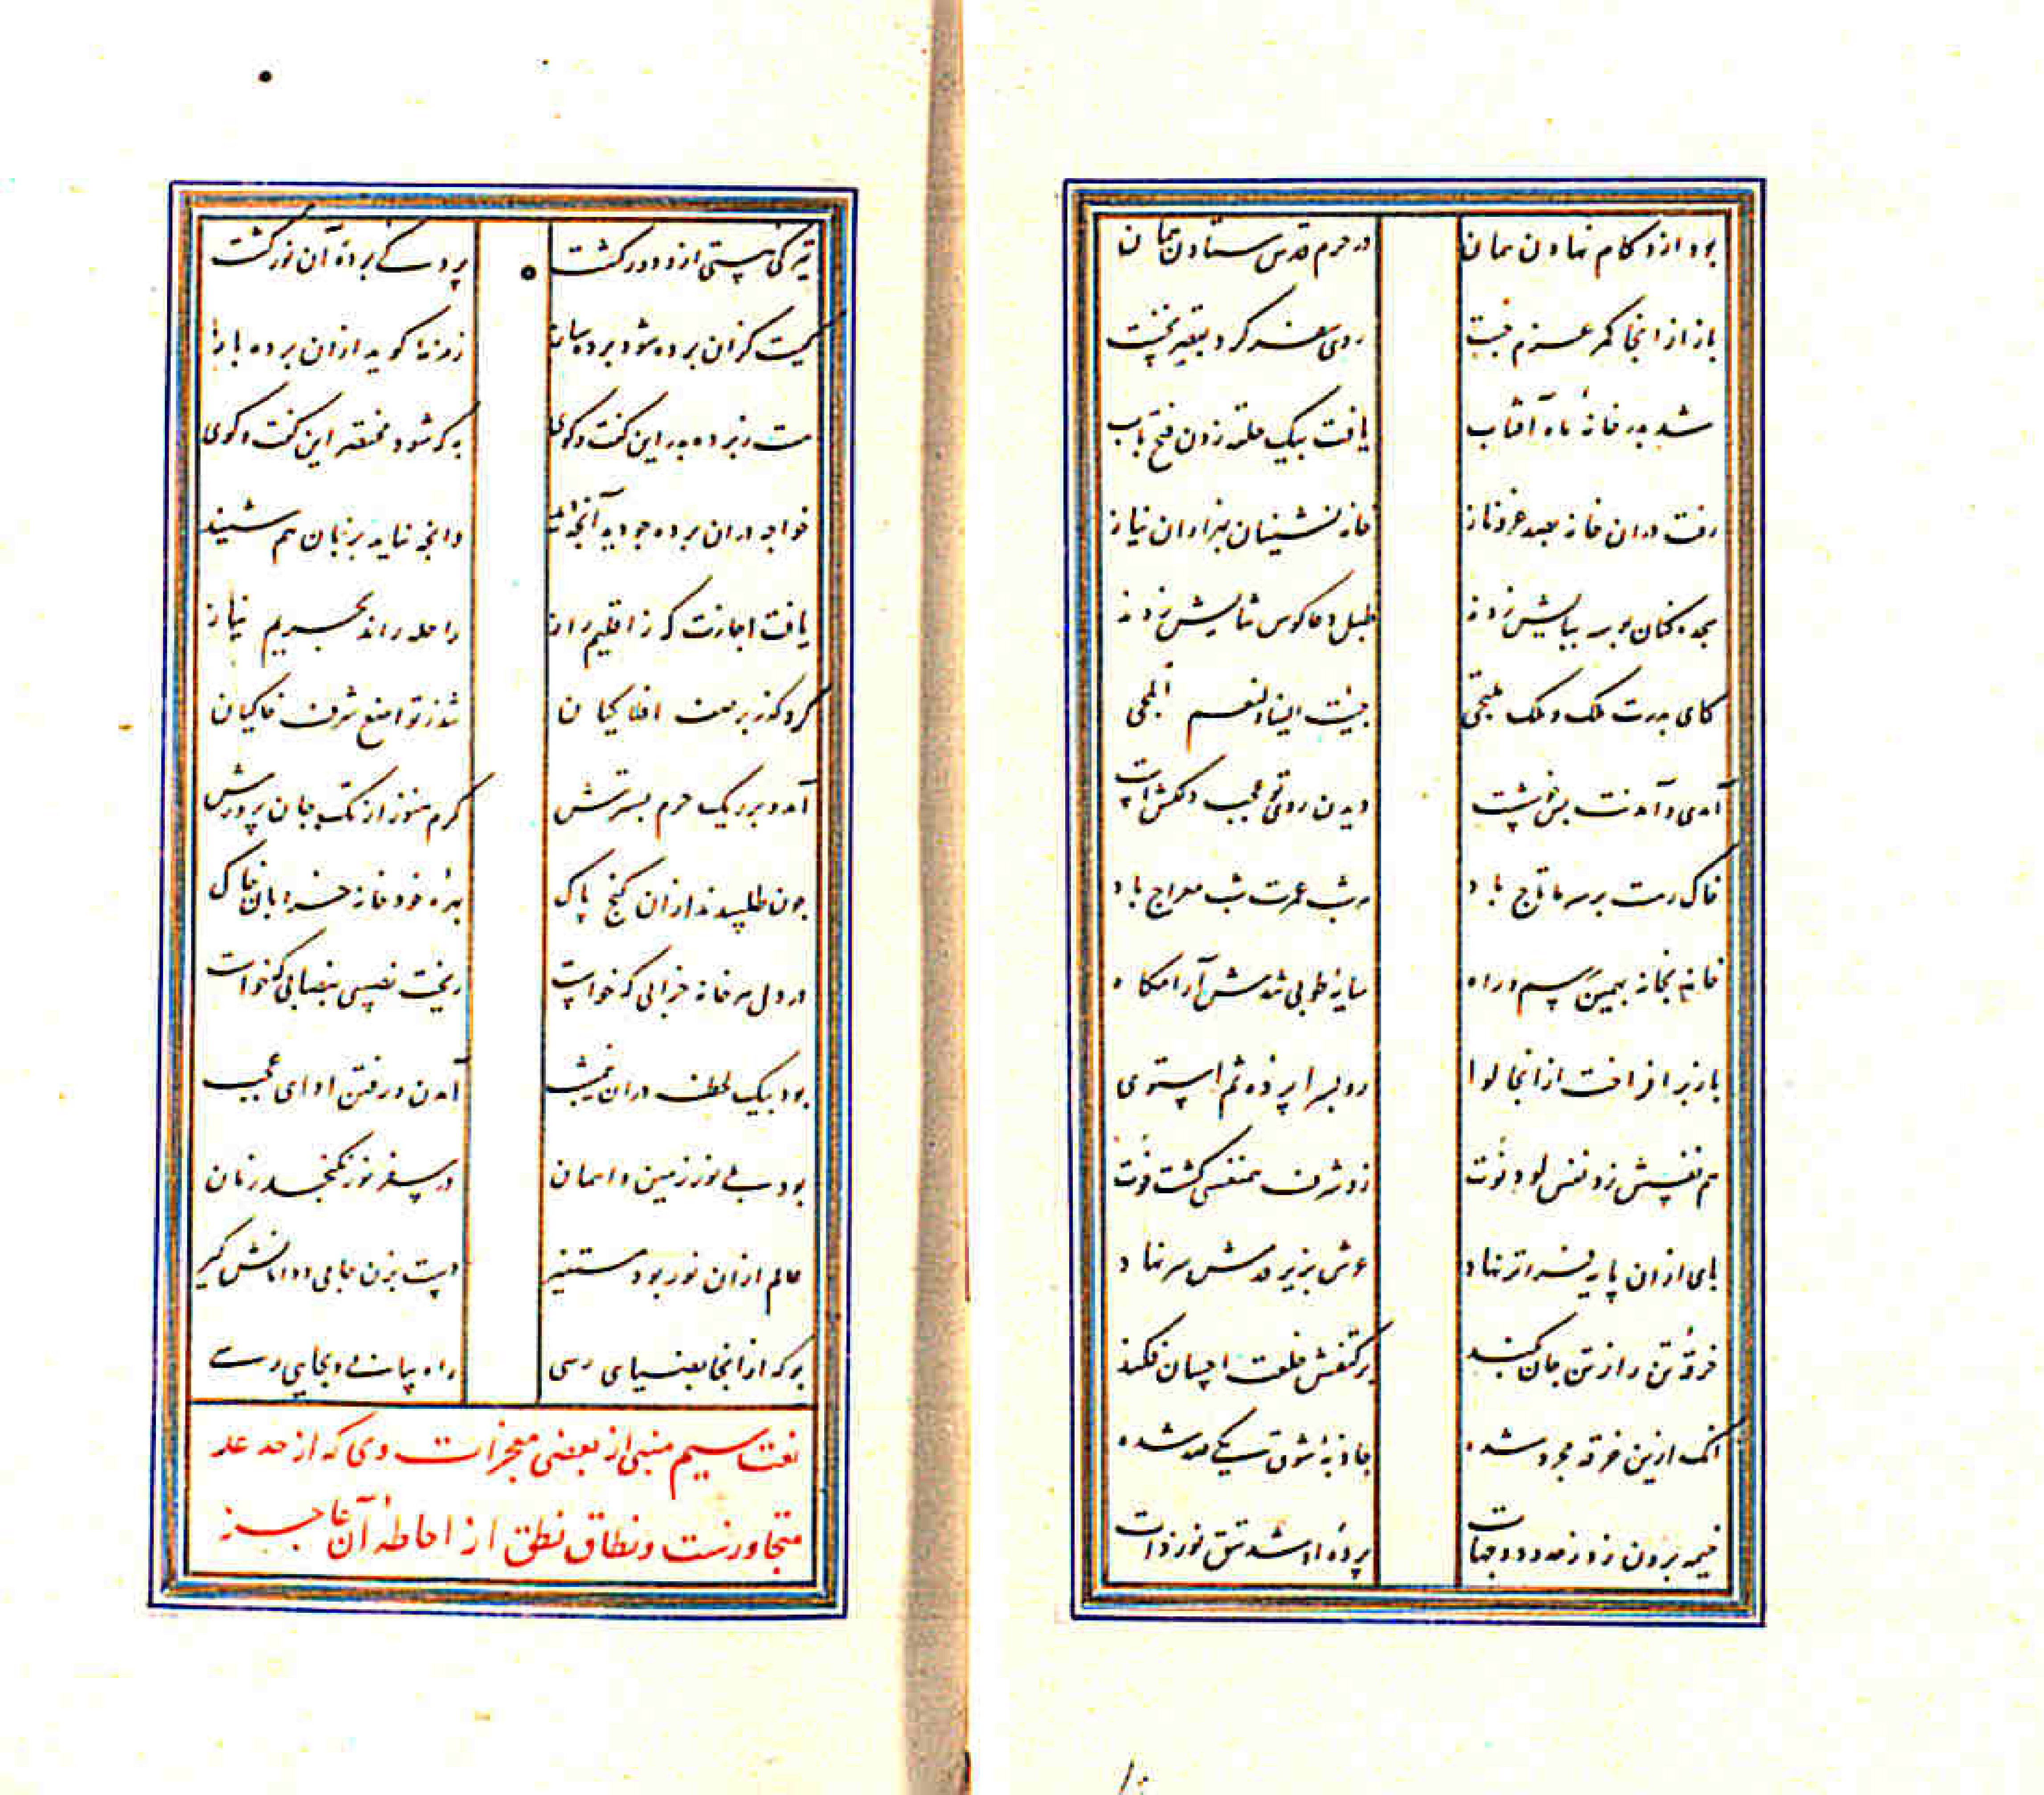 بود ازو کام نهادن همان در حرم قدس ستادن همان
باز از انجا کمر عزم جست روی سفر کرد بقصر نخست
شد بدر خانهٔ ماه آفتاب یافت بیک حلقه زدن فتح باب
رفت دران خانه بصد عز و ناز خانه نشینان بهزاران نیاز
سجده کنان بوسه بپایش زدند طبل دعا کوس ثنایش زدند
کای بدرت ملک و ملک ملتجی جئت الینا ولنعم المجی
آمدی و آمدنت بس خوشست دیدن روی تو عجب دلکش است
خاک رهت بر سر ما تاج باد هر شب عمرت شب معراج باد
خانه بخانه بهمین رسم و راه سایهٔ طوبی شدش آرامکاه
باز بر افراخت از انجا لوا رو بسراپرده ثم استوی
هم نفسش زد نفس لو دنوت زو شرف همنفسی کشت فوت
پای ازان پایه فراتر نهاد عرش بزیر قدمش سر نهاد
خرقهٔ تن را ز تن جان کند بر کتفش خلعت احسان فکند
انک ازین خرقه مجرد شده جاذبهٔ شوق یکی صد شده
خیمه برون زد ز حدود و جهات پردهٔ او شد تتق نور ذات
تیرکی هستی ازو دور کشت پردکی پرده آن نور کشت
کیست کزان پرده شود پرده ساز زمزمهٔ کوید ازان پرده باز
هست ز پرده بدر این کفت و کوی به که شود مختصر این کفت و کوی
خواجه دران پرده چو دید آنچه دید وانچه نیاید بزبان هم شنید
یافت اجازت که ز اقلیم راز راحله راند بحریم نیاز
کرد کذر بر صف افلاکیان شد ز تواضع شرف خاکیان
آمد و بر ریک حرم بسترش کرم هنوز از تک جان پرورش
چون طلبیدند ازان کنج پاک بهرهٔ خود خانه خرابان خاک
در دل هر خانه خرابی که خواست ریخت نفیسی بنصابی که خواست
بود بیک لحظه دران نیم شب آمدن و رفتن او ای عجب
بود همه نور زمین و آسمان در سفر نور نکنجد زمان
عالم ازان نور بود مستنیر دست بزن جامی و دامانش کیر
بو که از انجا بضیای رسی راه بیابی و بجایی رسی
نعت سیم منبی از بعضی معجزات وی که از حد عد
متجاوزست و نطاق نطق از احاطهٔ آن عاجز